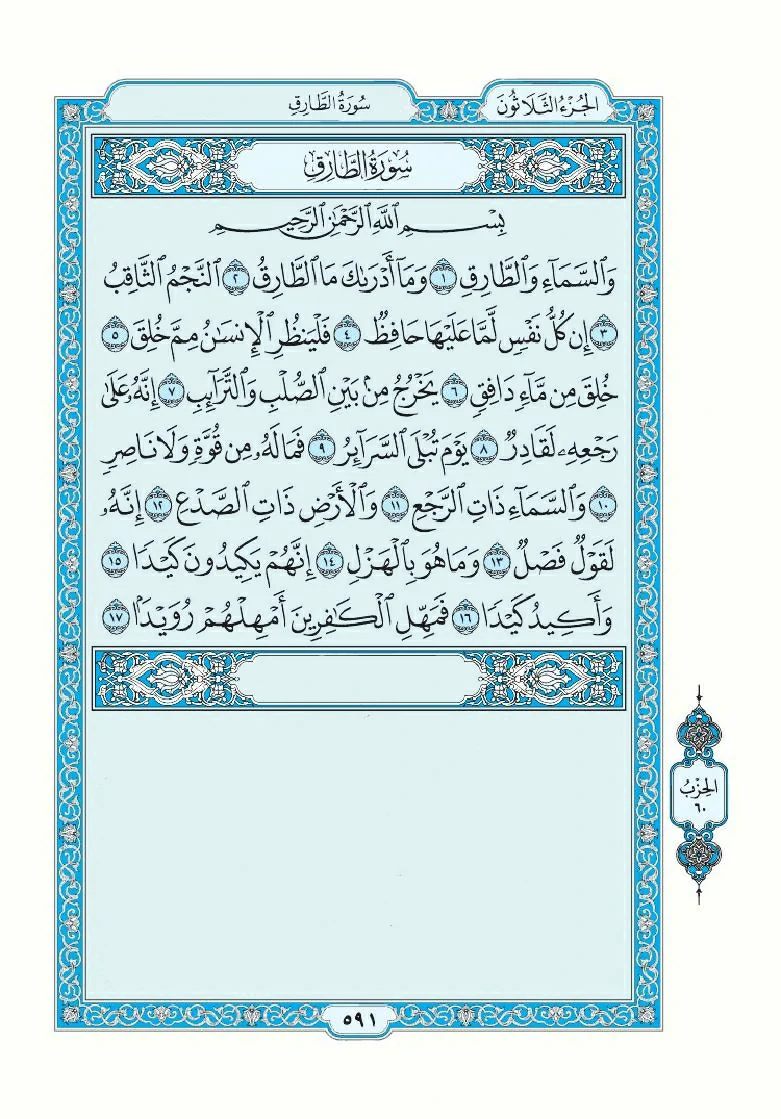 الجُزْءُ الثَّلَاثُونَ
سُورَةُ الطَّارِقِ
سُورَةُ الطَّارِقِ
بِسْمِ ٱللَّهِ ٱلرَّحْمَٰنِ ٱلرَّحِيمِ
وَٱلسَّمَآءِ وَٱلطَّارِقِ ١ وَمَآ أَدْرَىٰكَ مَا ٱلطَّارِقُ ٢ ٱلنَّجْمُ ٱلثَّاقِبُ
٣ إِن كُلُّ نَفْسٍ لَّمَّا عَلَيْهَا حَافِظٌ ٤ فَلْيَنظُرِ ٱلْإِنسَٰنُ مِمَّ خُلِقَ ٥
خُلِقَ مِن مَّآءٍ دَافِقٍ ٦ يَخْرُجُ مِنۢ بَيْنِ ٱلصُّلْبِ وَٱلتَّرَآئِبِ ٧ إِنَّهُۥ عَلَىٰ
رَجْعِهِۦ لَقَادِرٌ ٨ يَوْمَ تُبْلَى ٱلسَّرَآئِرُ ٩ فَمَا لَهُۥ مِن قُوَّةٍ وَلَا نَاصِرٍ
١٠ وَٱلسَّمَآءِ ذَاتِ ٱلرَّجْعِ ١١ وَٱلْأَرْضِ ذَاتِ ٱلصَّدْعِ ١٢ إِنَّهُۥ
لَقَوْلٌ فَصْلٌ ١٣ وَمَا هُوَ بِٱلْهَزْلِ ١٤ إِنَّهُمْ يَكِيدُونَ كَيْدًا ١٥
وَأَكِيدُ كَيْدًا ١٦ فَمَهِّلِ ٱلْكَٰفِرِينَ أَمْهِلْهُمْ رُوَيْدًۢا ١٧
الحِزْبُ
٦٠
٥٩١